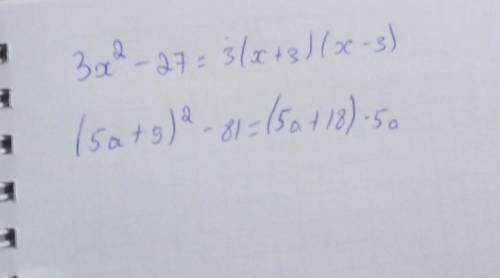 3x² - 27 = 3(x+3)(x-3)
(5a+9)² - 81 = (5a+18)·5a